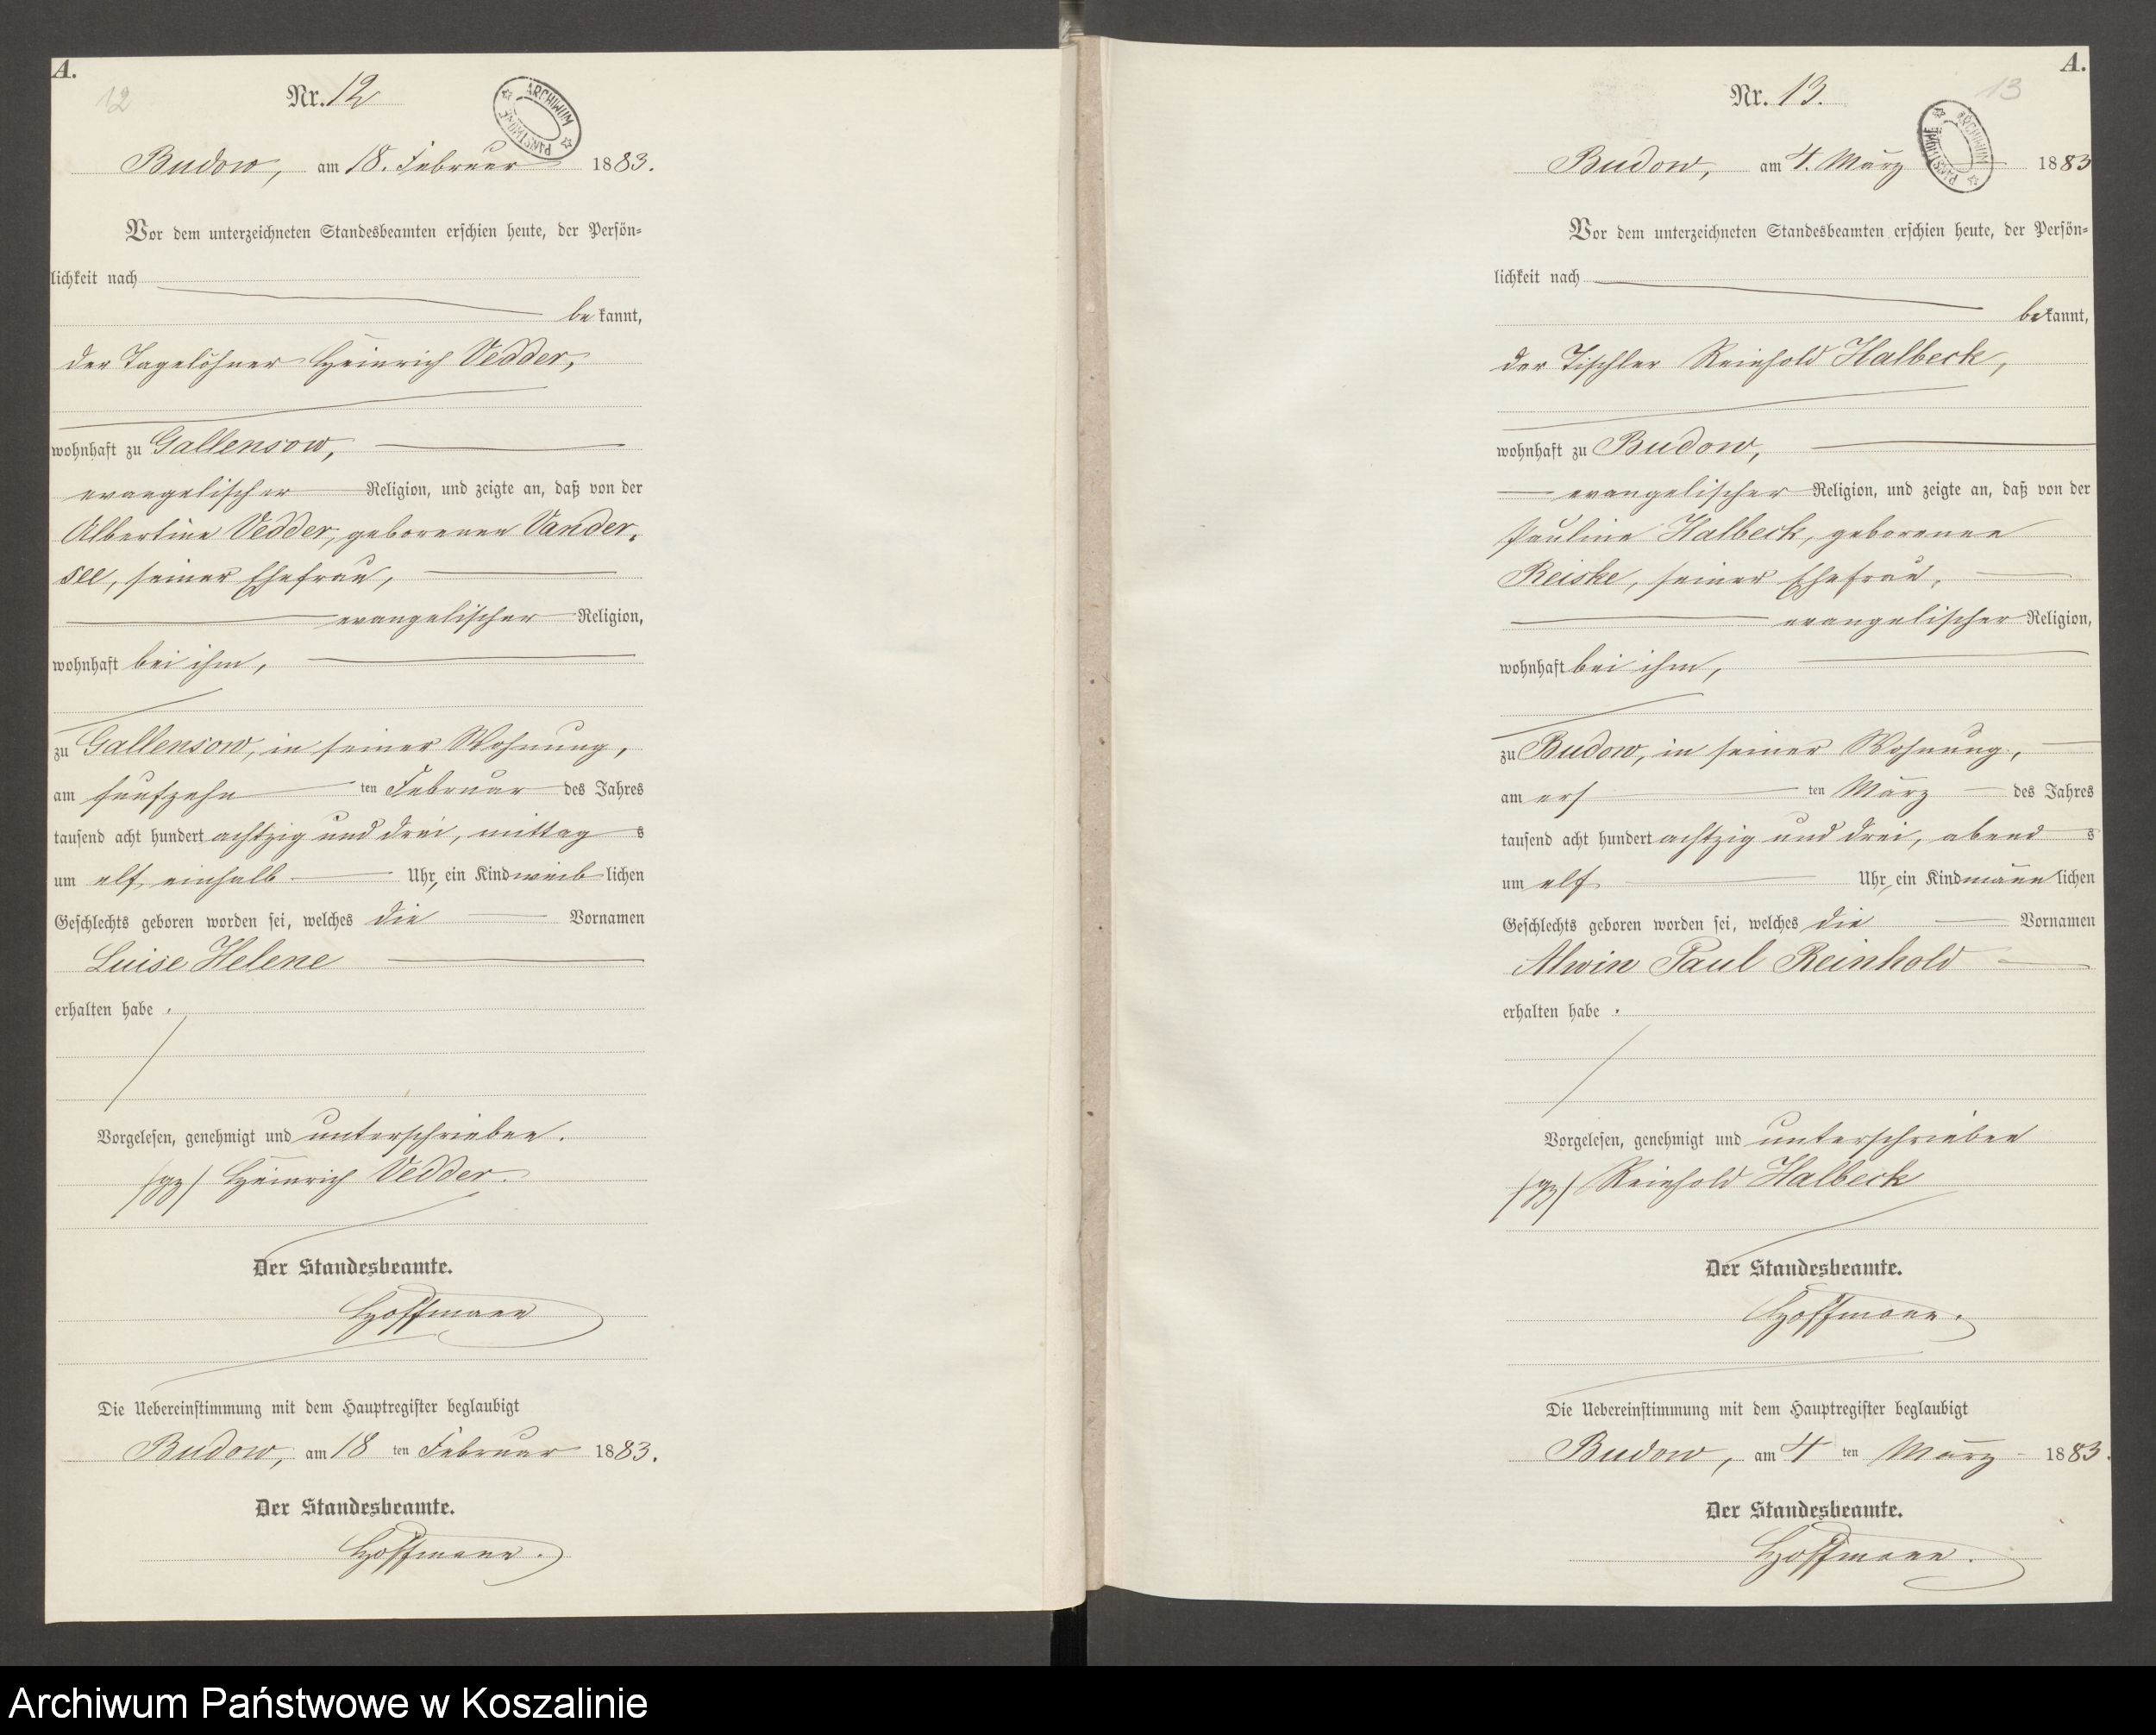 A.
12
Nr. 12
ARCHIWUM PAŃSTWOWE
Budow, am 18. Februar 1883.
Vor dem unterzeichneten Standesbeamten erschien heute, der Persön=
lichkeit nach
be kannt,
der Tagelöhner Heinrich Vedder,
wohnhaft zu Gallensow,
evangelischer Religion, und zeigte an, daß von der
Albertine Vedder, geborenen Vander,
see, seiner Ehefrau,
evangelischer Religion,
wohnhaft bei ihm,
zu Gallensow, in seiner Wohnung,
am fünfzehn ten Februar des Jahres
tausend acht hundert achtzig und drei, mittag s
um elf einhalb Uhr, ein Kind weib lichen
Geschlechts geboren worden sei, welches die Vornamen
Luise Helene
erhalten habe .
Vorgelesen, genehmigt und unterschrieben.
/gz/ Heinrich Vedder.
Der Standesbeamte.
Hoffmann
Die Uebereinstimmung mit dem Hauptregister beglaubigt
Budow, am 18 ten Februar 1883.
Der Standesbeamte.
Hoffmann.
A.
13
Nr. 13.
ARCHIWUM PAŃSTWOWE
Budow, am 4. März 1883
Vor dem unterzeichneten Standesbeamten erschien heute, der Persön=
lichkeit nach
bekannt,
der Tischler Reinhold Halbeck,
wohnhaft zu Budow,
evangelischer Religion, und zeigte an, daß von der
Pauline Halbeck, geborenen
Reiske, seiner Ehefrau,
evangelischer Religion,
wohnhaft bei ihm,
zu Budow, in seiner Wohnung,
am ers ten März des Jahres
tausend acht hundert achtzig und drei, abend s
um elf Uhr, ein Kind männ lichen
Geschlechts geboren worden sei, welches die Vornamen
Alwin Paul Reinhold
erhalten habe .
Vorgelesen, genehmigt und unterschrieben
/gz/ Reinhold Halbeck
Der Standesbeamte.
Hoffmann.
Die Uebereinstimmung mit dem Hauptregister beglaubigt
Budow, am 4 ten März 1883.
Der Standesbeamte.
Hoffmann.
Archiwum Państwowe w Koszalinie